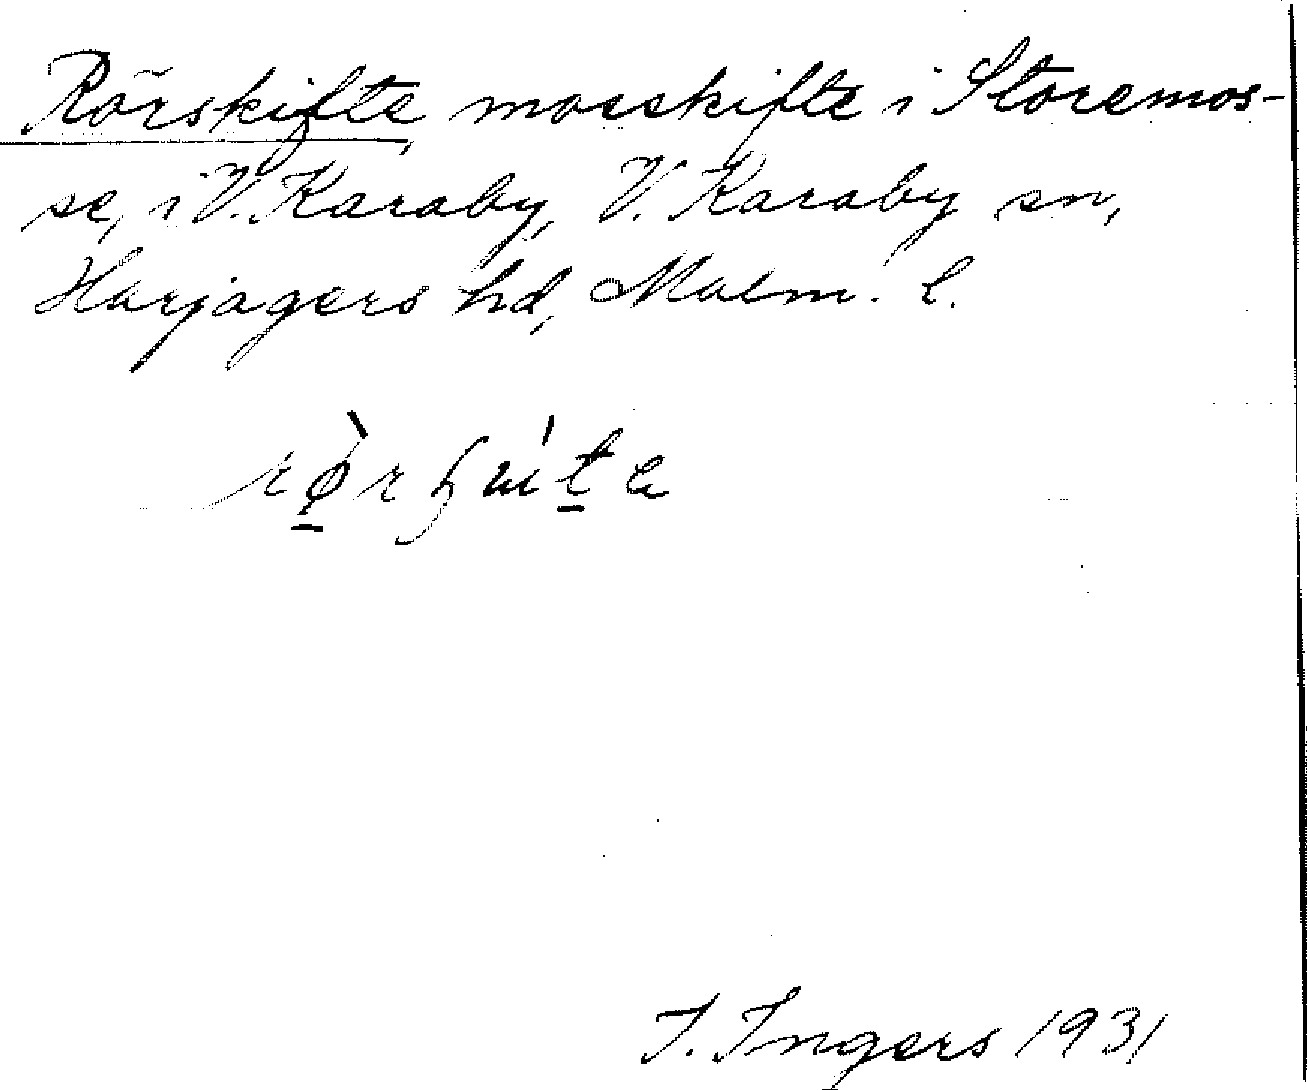 Rörskifte, mosskifte i Storemos-
se, i V. Karaby, V. Karaby sn,
Harjagers hd, Malm. l.
I. Ingers 1931